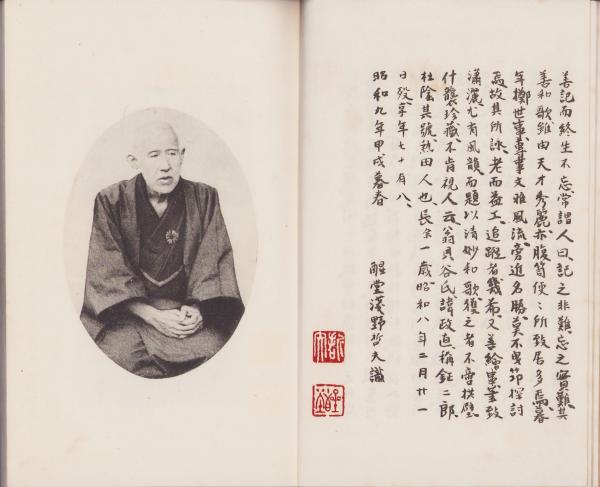 善記而終生不忘常謂人曰記之非難忘之實難其
善和歌雖由天才秀麗亦腹笥便〻所致居多焉暮
年擲世事專葉文雅風流旁近名勝莫不曳筇探討
焉故其所詠老而益工追蹤者幾希又善繪事業致
瀟灑尤有風韻而題以清妙和歌獲之者不啻拱璧
什襲珍藏不肯視人云翁貝谷氏諱政直稱鉦二郎
杜陰其號熱田人也長余一歲昭和八年二月廿一
日歿享年七十有八
昭和九年甲戌暮春
醒堂淺野哲夫識